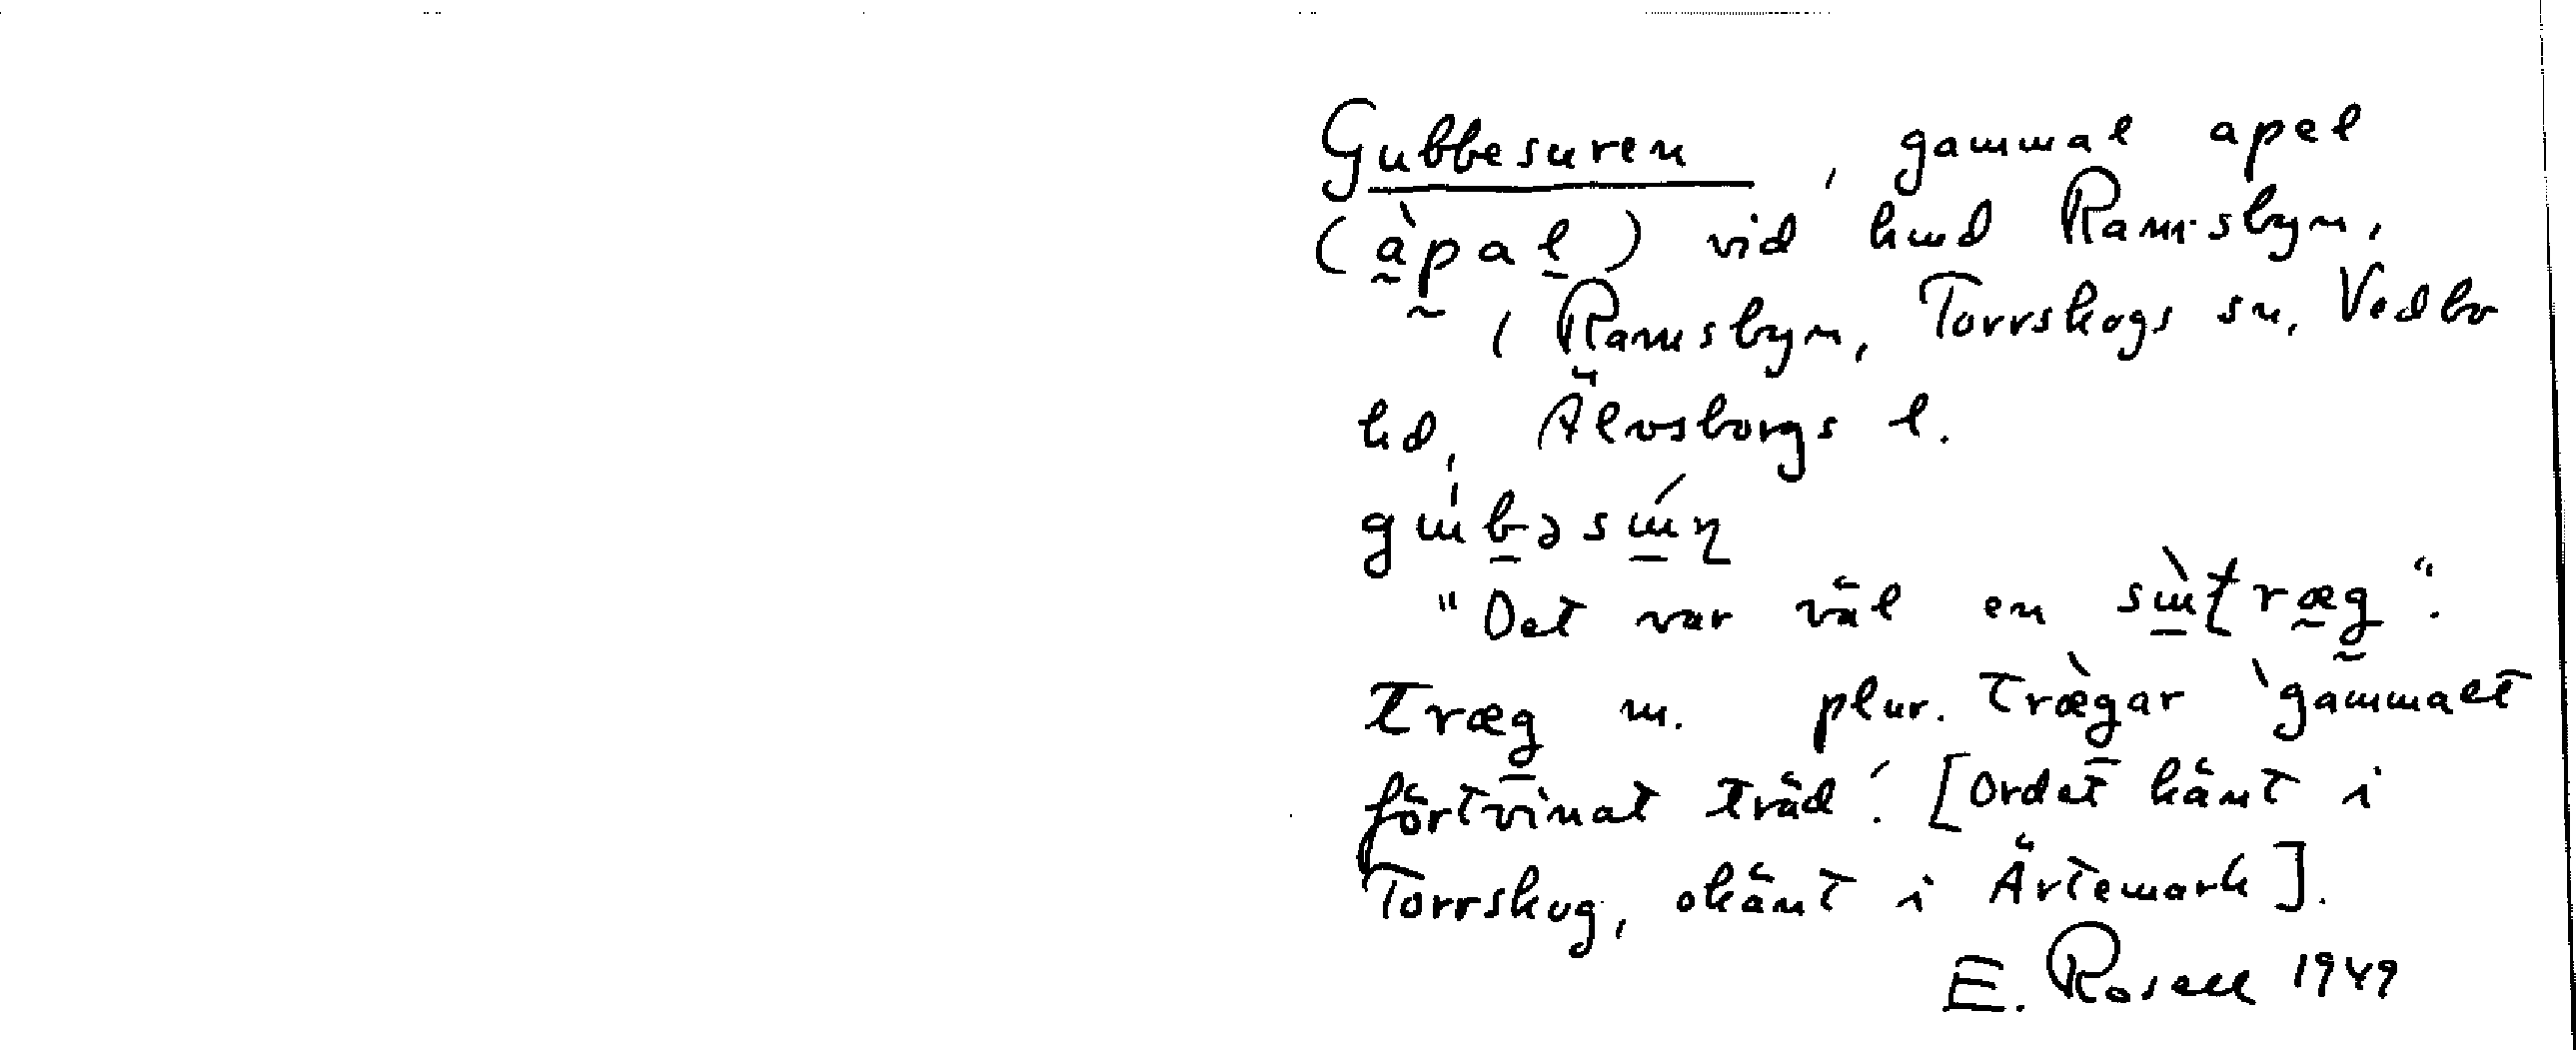 Gubbesuren, gammal apel
(àpal) vid hmd Ramsbyn,
i Ramsbyn, Torrskogs sn, Vedbo
hd, Älvsborgs l.
"Det var väl en
træg m. plur. trægar 'gammalt
förtvinat träd'. [Ordet känt i
Torrskog, okänt i Ärtemark].
E. Rosell 1949